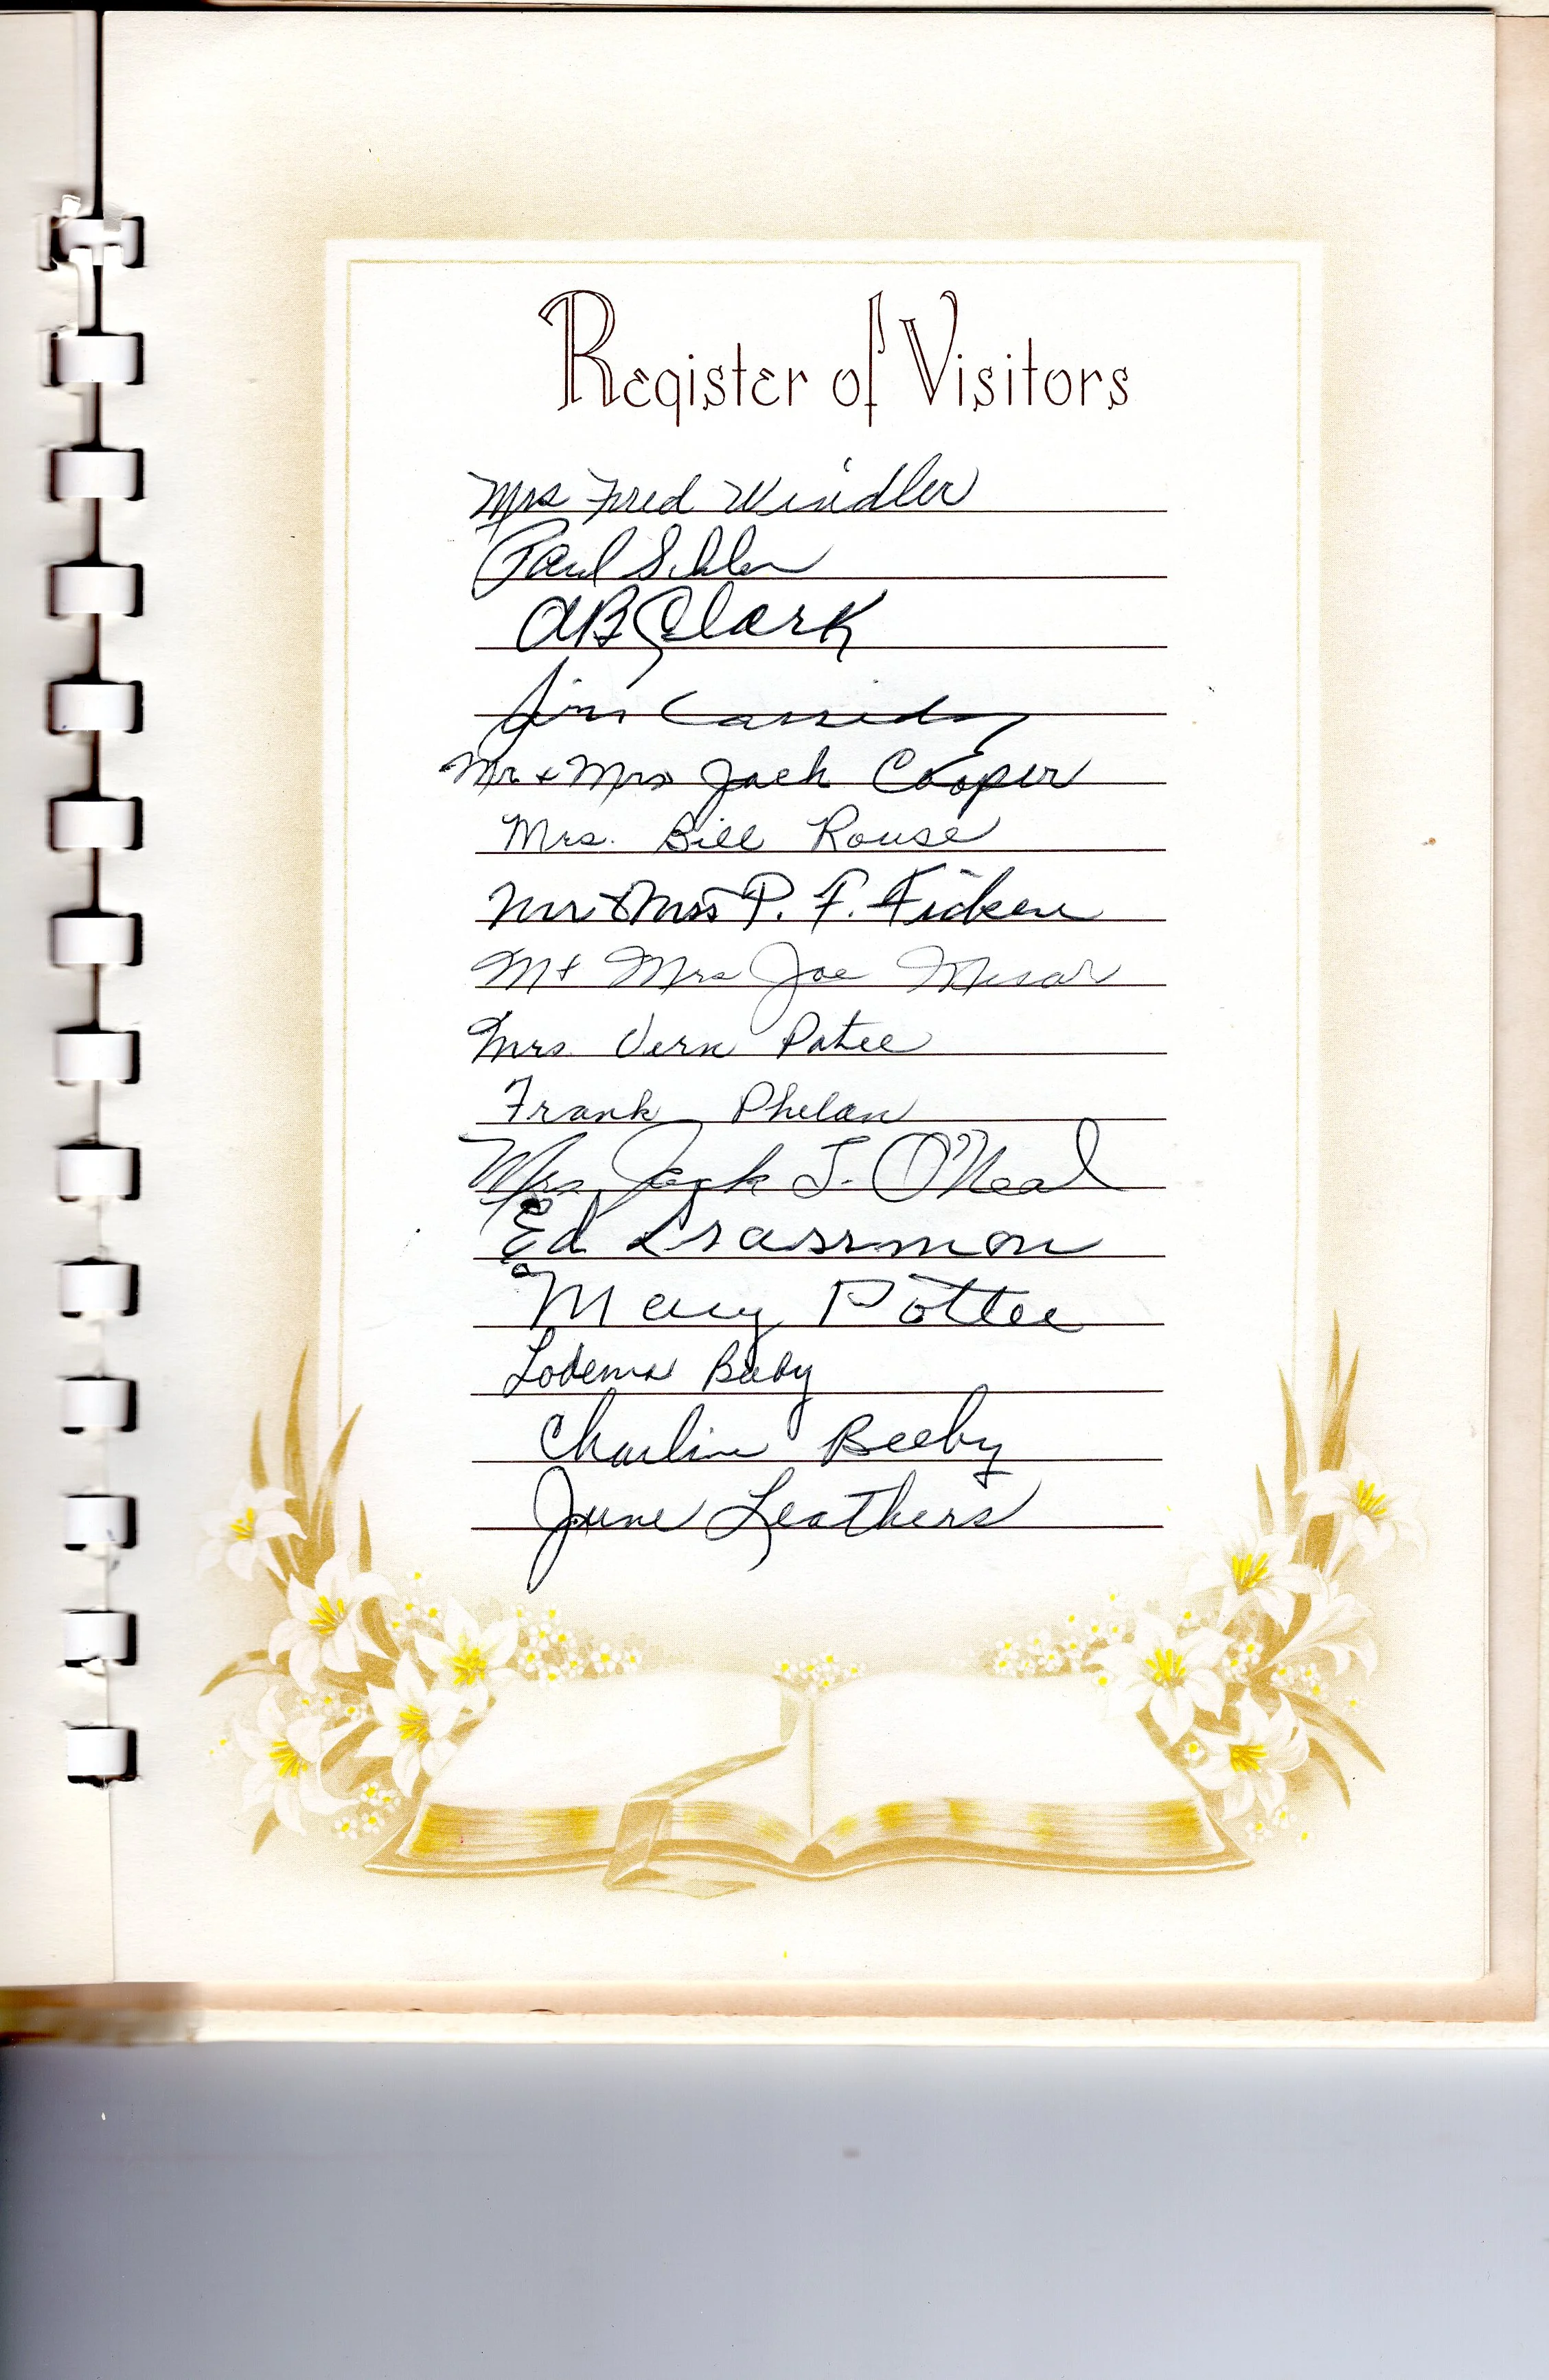 Register of Visitors
Mrs Fred Windler
Paul
AB Clark
Jim Cassidy
Mr & Mrs Jack Cooper
Mrs. Bill Rouse
Mr & Mrs P. F. Ficken
M & Mrs Joe Mesar
Mrs. Vern Patee
Frank Phelan
Mrs. Jack J. O'Neal
Ed Grassmon
Mary Pottee
Lodema Beeby
Charline Beeby
June Leathers